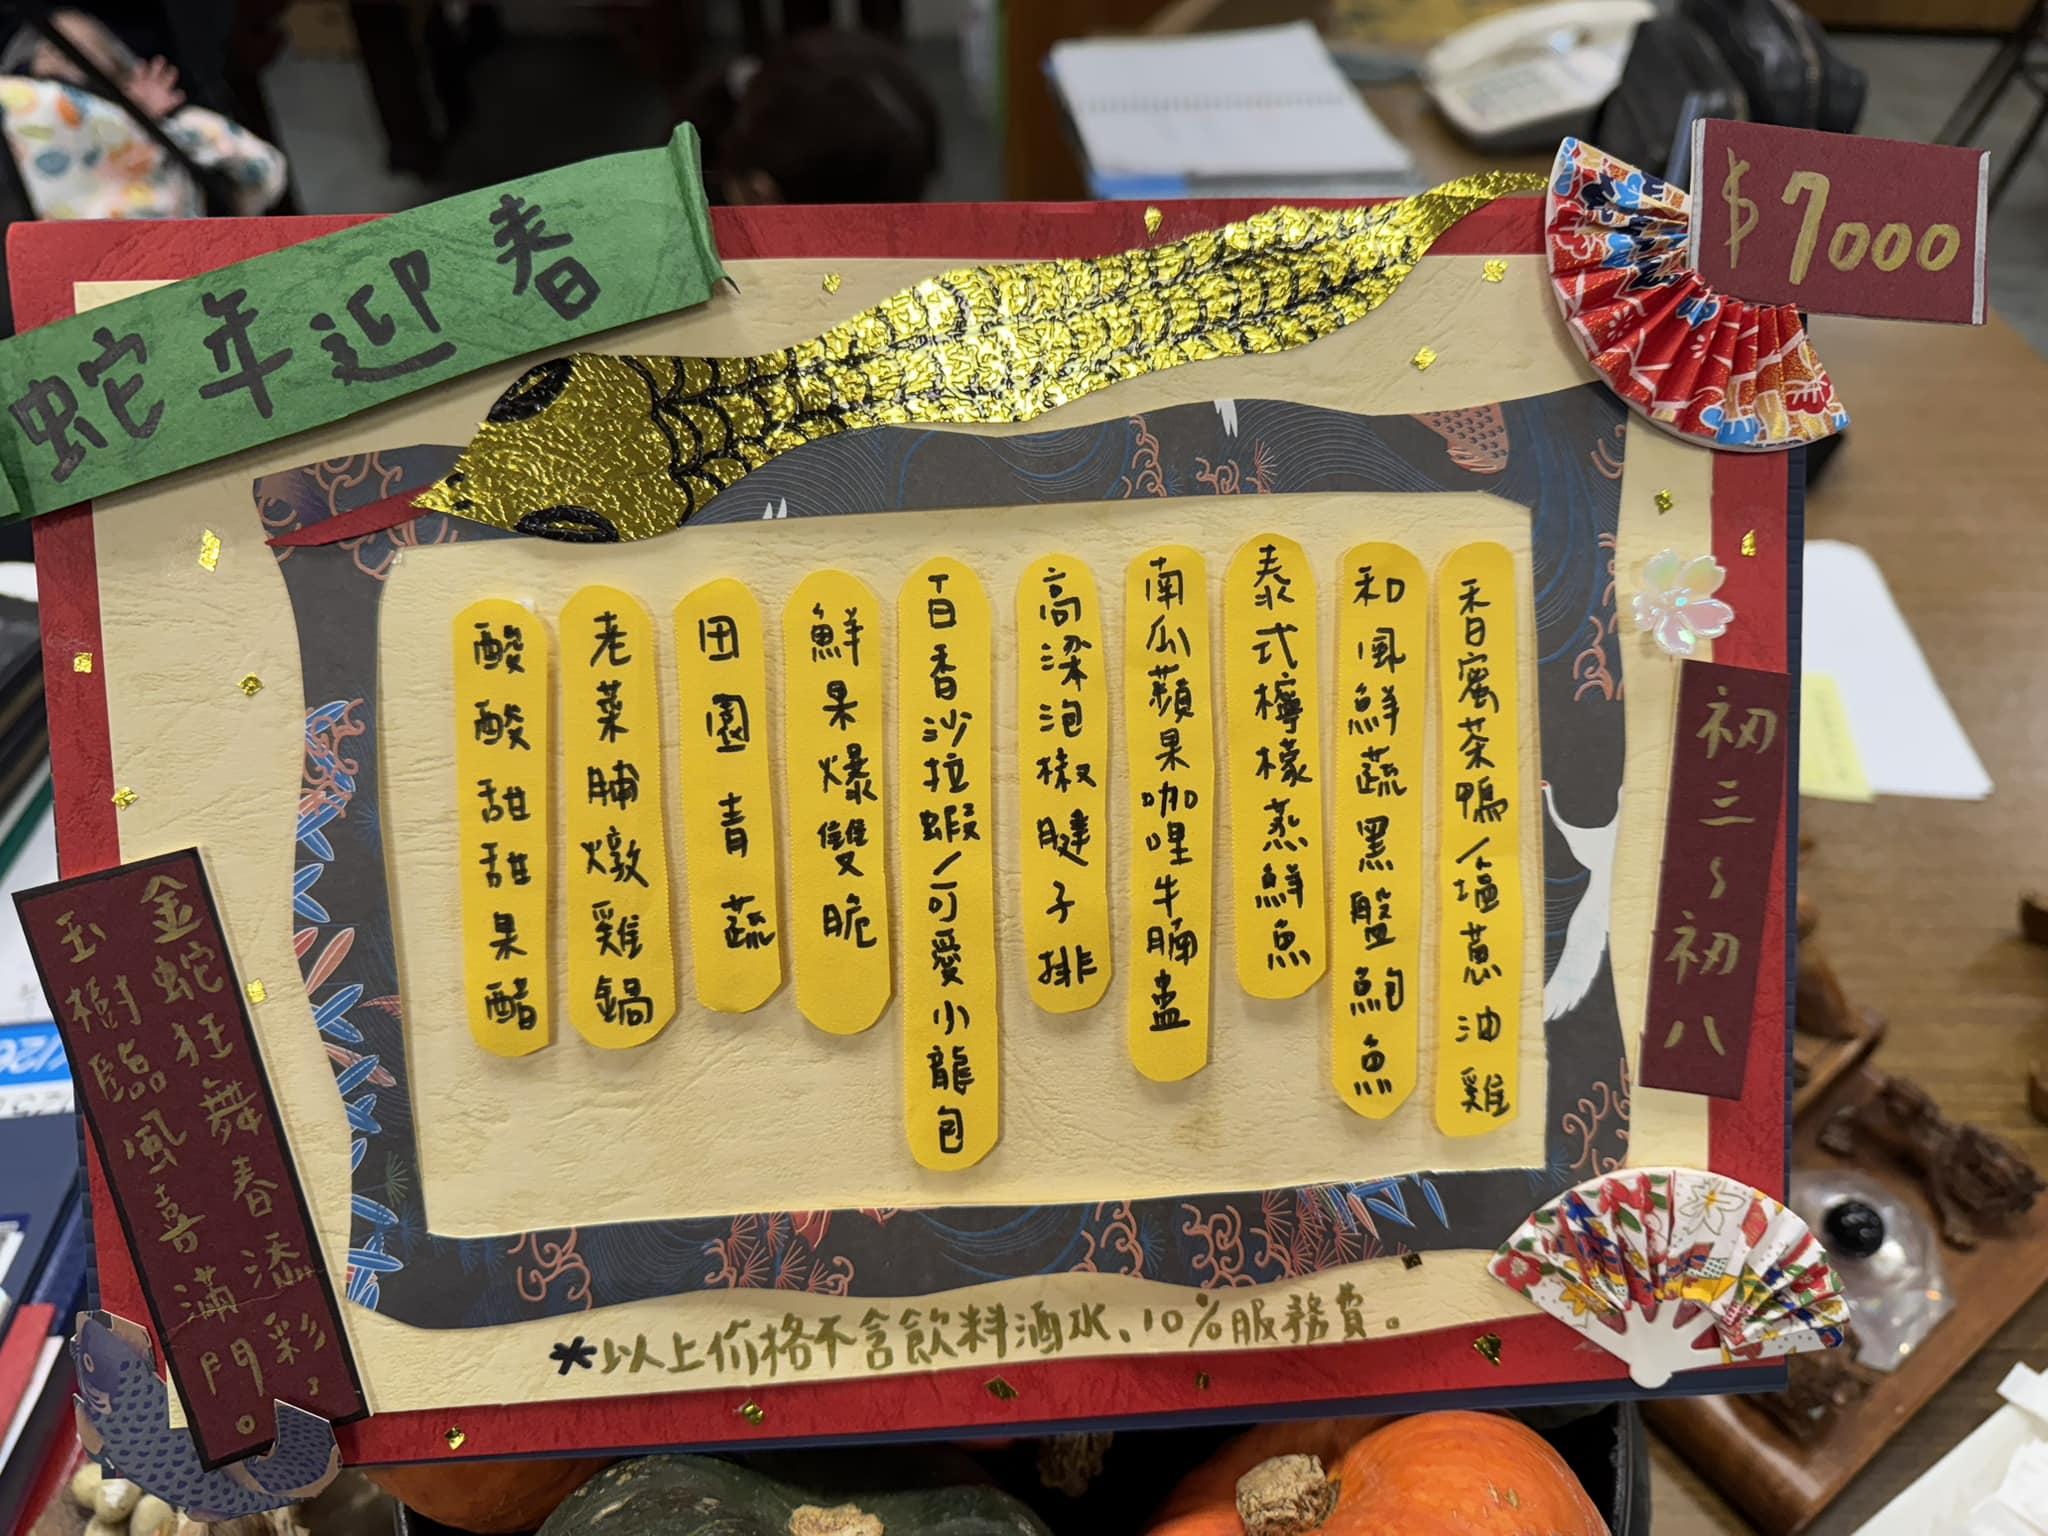 蛇年迎春
$7000
初三~初八
香蜜茶鴨/塩蔥油雞
和風鮮蔬黑盤鮑魚
泰式檸檬蒸鮮魚
南瓜蘋果咖哩牛腩盅
高梁泡椒腱子排
百香沙拉蝦/可愛小龍包
鮮果爆雙脆
田園青蔬
老菜脯燉雞鍋
酸酸甜甜果醋
金蛇狂舞春添彩,
玉樹臨風喜滿門。
*以上价格不含飲料酒水、10%服務費。